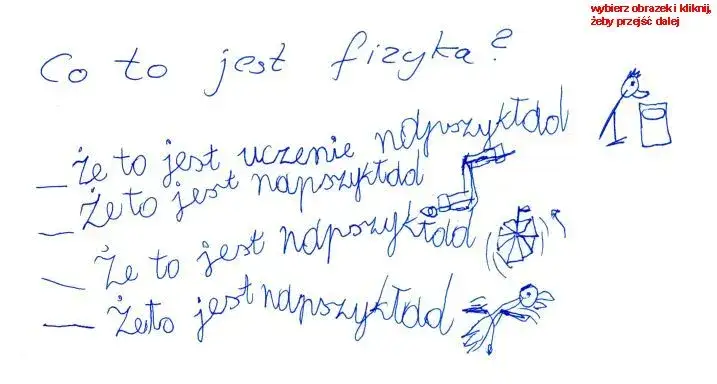 wybierz obrazek i kliknij,
żeby przejść dalej
Co to jest fizyka?
— Że to jest uczenie napszykład
— Że to jest napszykład
— Że to jest napszykład
— Żeto jest napszykład